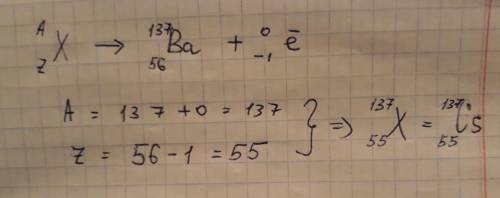 ᴬ_Z X → ¹³⁷₅₆Ba + ⁰₋₁ē
A = 137 + 0 = 137
Z = 56 - 1 = 55 } ⇒ ¹³⁷₅₅X = ¹³⁷₅₅Cs